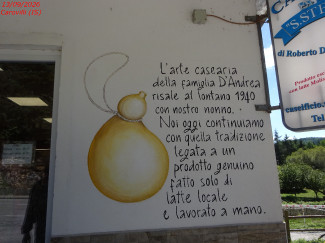 12/09/2020
Carovilli (IS)
L'arte casearia
della famiglia D'Andrea
risale al lontano 1940
con nostro nonno.
Noi oggi continuiamo
con quella tradizione
legata a un
prodotto genuino
fatto solo di
latte locale
e lavorato a mano.
di Roberto D
Prodotto con
con latte Moli
caseificio
Tel